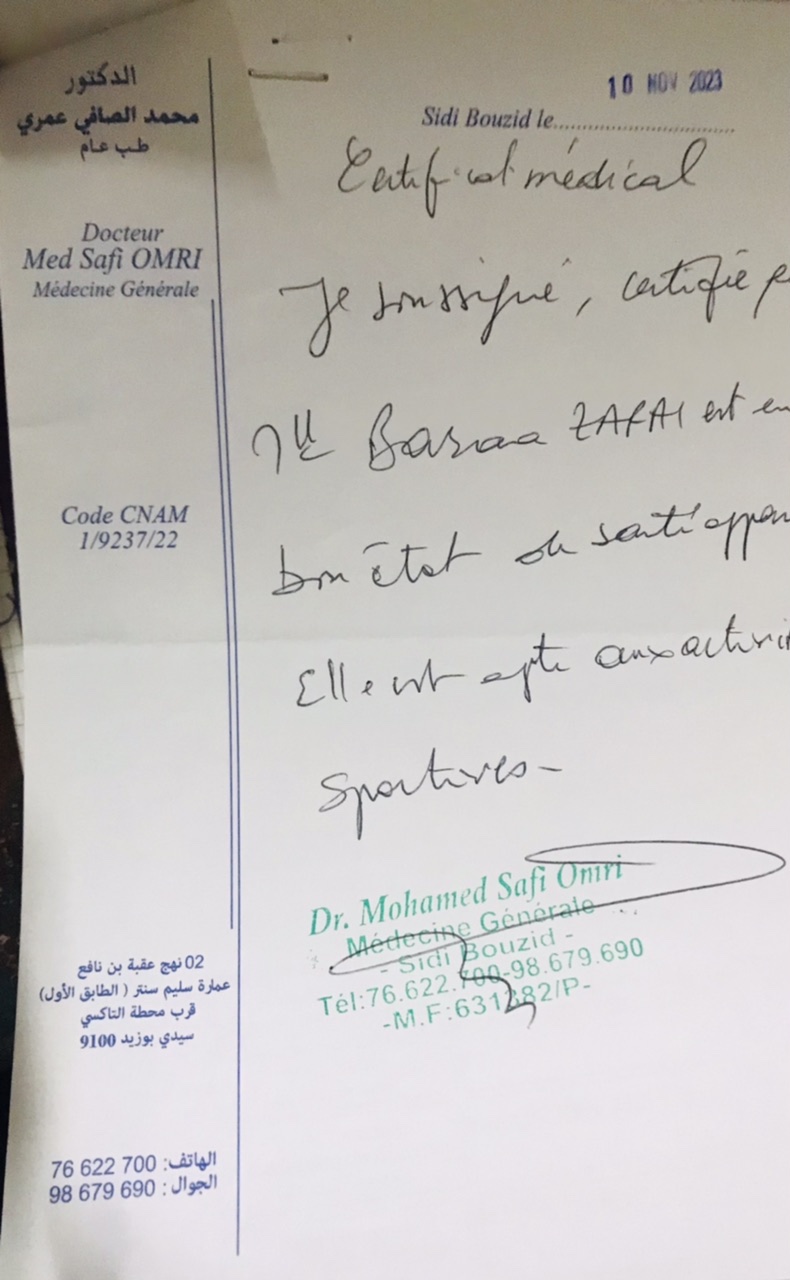 الدكتور
محمد الصافي عمري
طب عام
Docteur
Med Safi OMRI
Médecine Générale
Code CNAM
1/9237/22
02 نهج عقبة بن نافع
عمارة سليم سنتر ( الطابق الأول)
قرب محطة التاكسي
سيدي بوزيد 9100
الهاتف: 700 622 76
الجوال : 690 679 98
10 NOV 2023
Sidi Bouzid le
Certificat médical
Je soussigné, certifie
Mlle Baraa est en
bon état de santé appar
Elle est apte aux activit
Sportives-
Dr. Mohamed Safi Omri
Médecine Générale
- Sidi Bouzid -
Tél:76.622.700-98.679.690